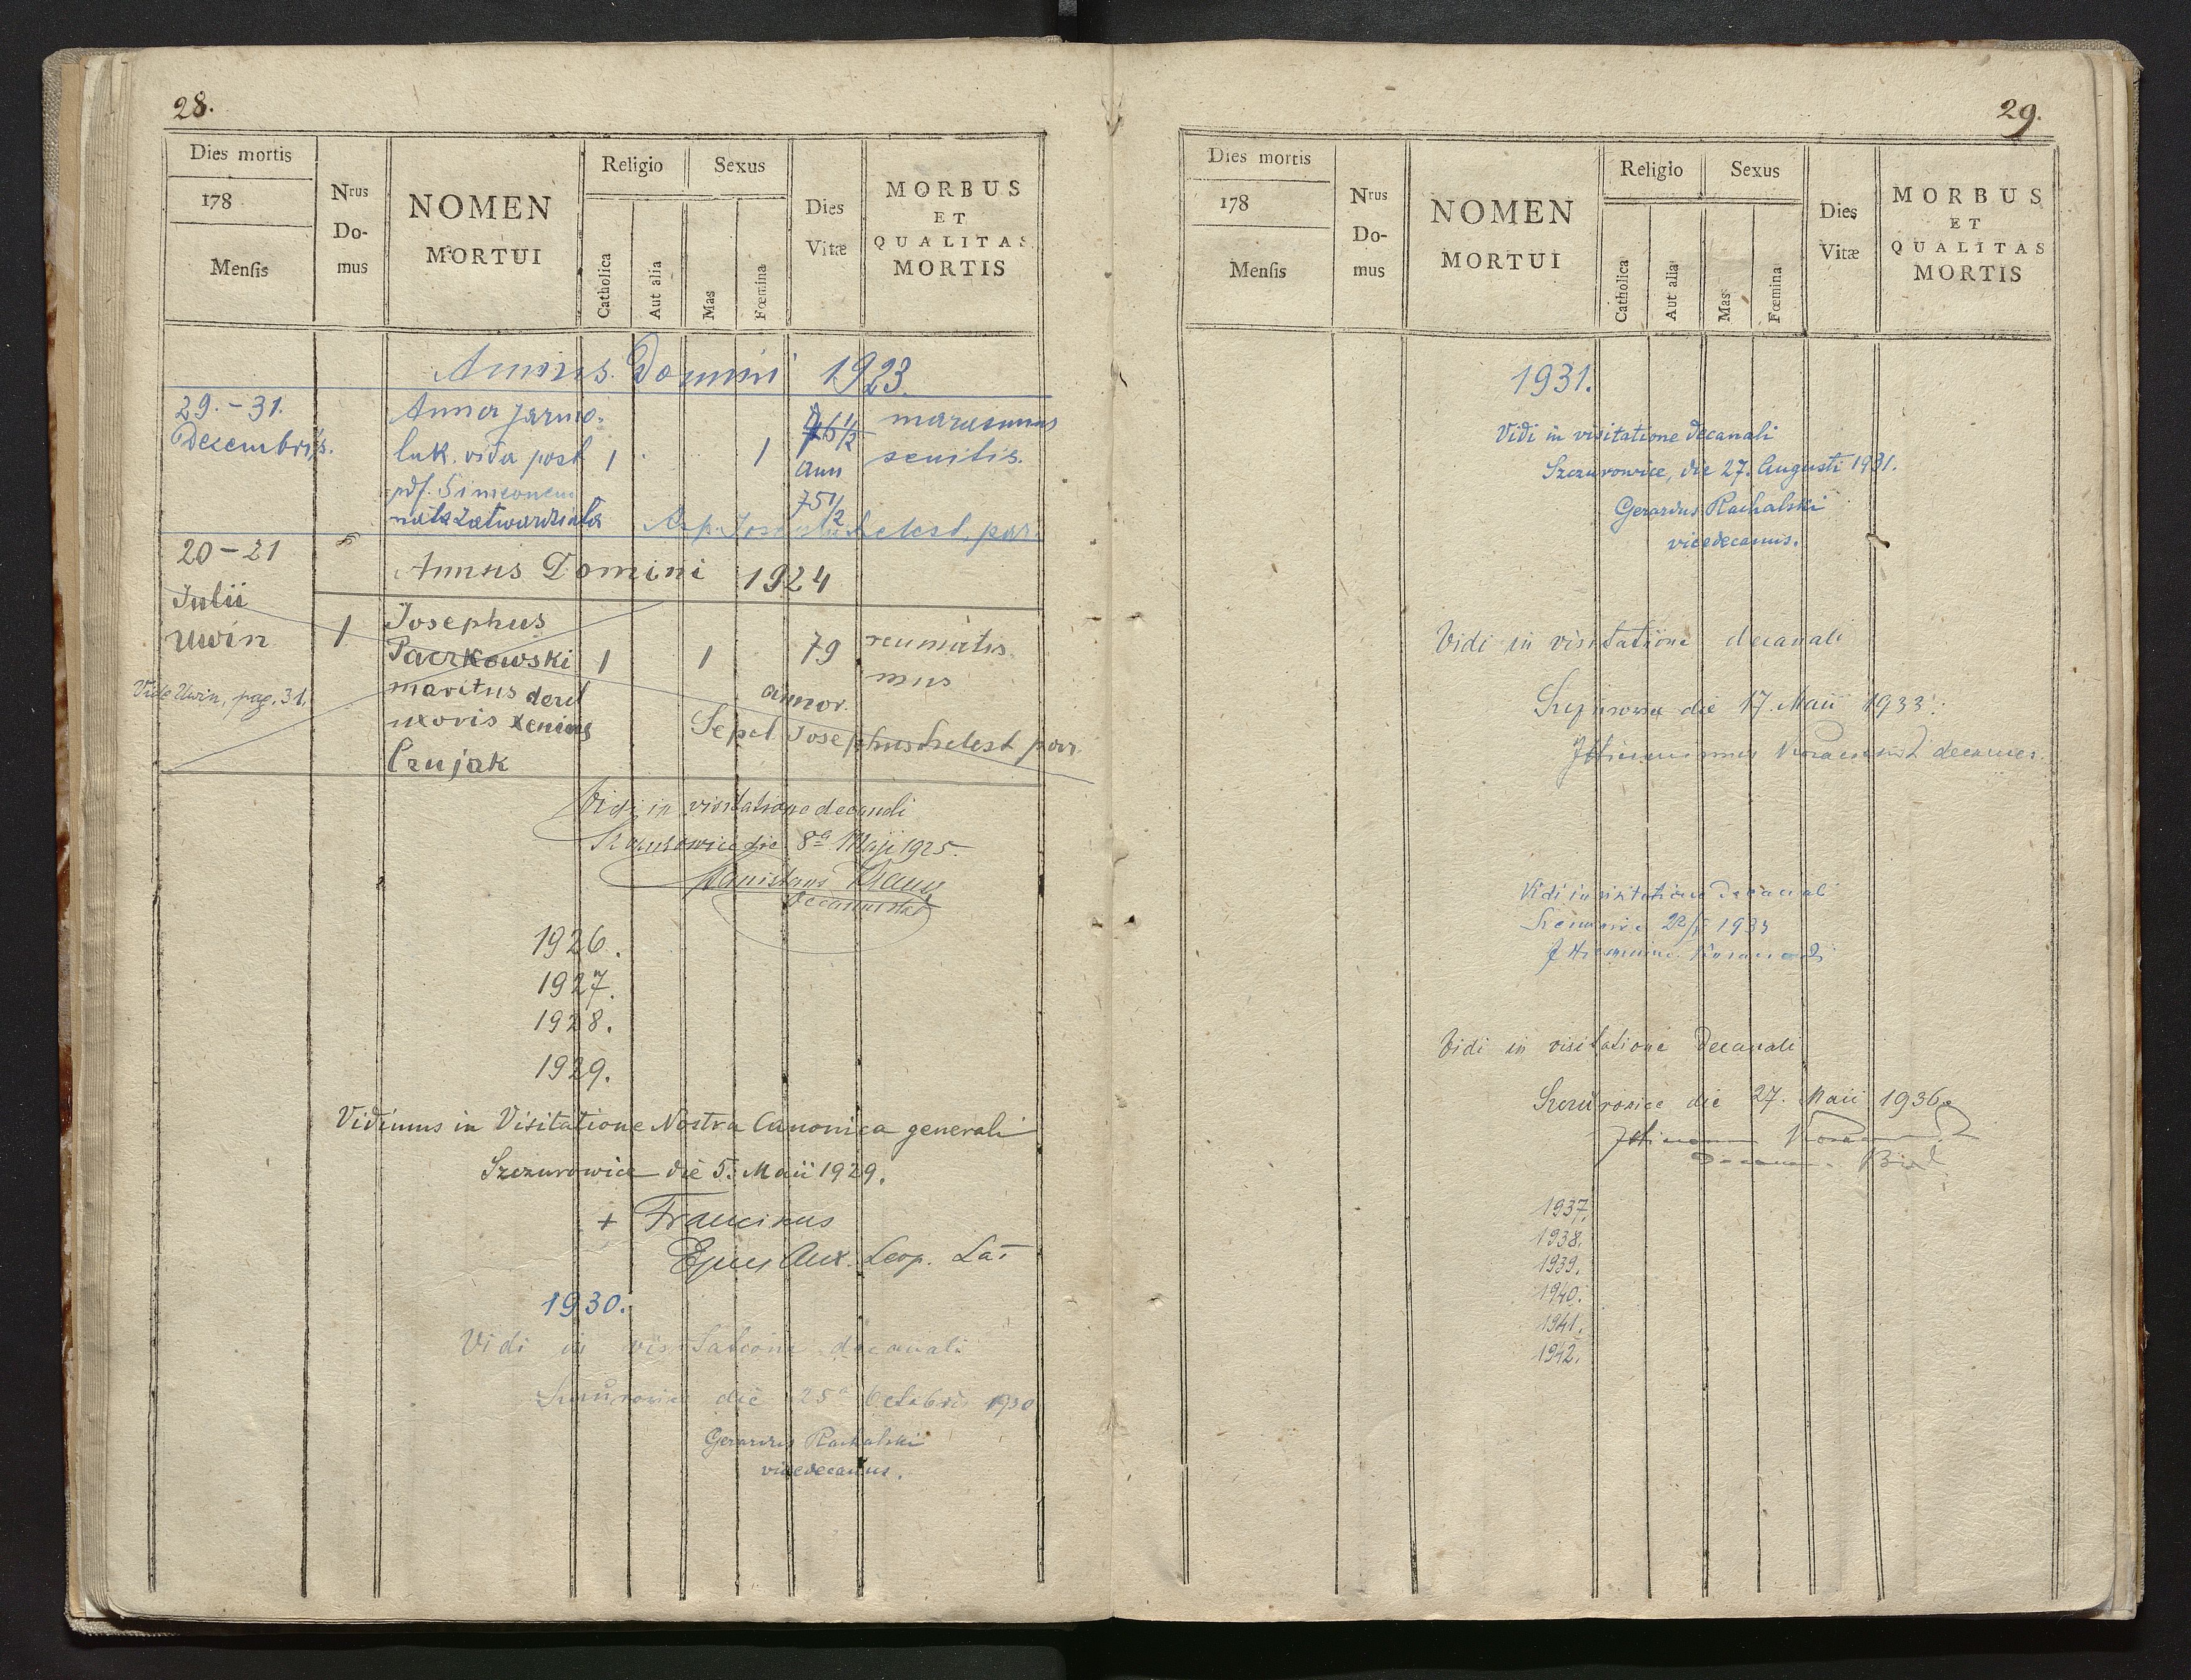 28.
Dies mortis
178
Mensis
Nrus
Do-
mus
NOMEN
MORTUI
Religio
Catholica
Aut alia
Sexus
Mas
Fœmina
Dies
Vitæ
MORBUS
ET
QUALITAS
MORTIS
Annus Domini 1923.
29.-31.
Decembris.
Anna Jarmo-
luk. vidua post
pdf. Simeonem
nata Zatwardziała
1
1
ann
75 1/2
marasmus
senilis.
Sep. Josephus Szelest, par.
20-21
Julii
Uwin
Vide Uwin, pag. 31.
Annus Domini 1924
1
Josephus
Paczkowski
maritus derel
uxoris Xeniae
Czujak
1
1
79
annor.
reumatis
mus
Sepel. Josephus Szelest par.
Vidi in visitatione decanali
Szczurowice die 8a Maji 1925.
Stanislaus
1926.
1927.
1928.
1929.
Vidimus in Visitatione Nostra Canonica generali
Szczurowice die 5. Maii 1929.
+ Franciscus
Eppus Aux. Leop. Lat
1930.
Vidi in visitatione decanali
Szczurowice die 25a Octobris 1930
Gerardus Rachalski
vicedecanus.
29.
Dies mortis
178
Mensis
Nrus
Do-
mus
NOMEN
MORTUI
Religio
Catholica
Aut alia
Sexus
Mas
Fœmina
Dies
Vitæ
MORBUS
ET
QUALITAS
MORTIS
1931.
Vidi in visitatione decanali
Szczurowice, die 27. Augusti 1931.
Gerardus Rachalski
vicedecanus.
Vidi in visitatione decanali
die 17. Maii 1933.
decanus.
Vidi in visitatione decanali
Vidi in visitatione decanali
Szczurowice die 27. Maii 1936.
1937.
1938.
1939.
1940.
1941.
1942.